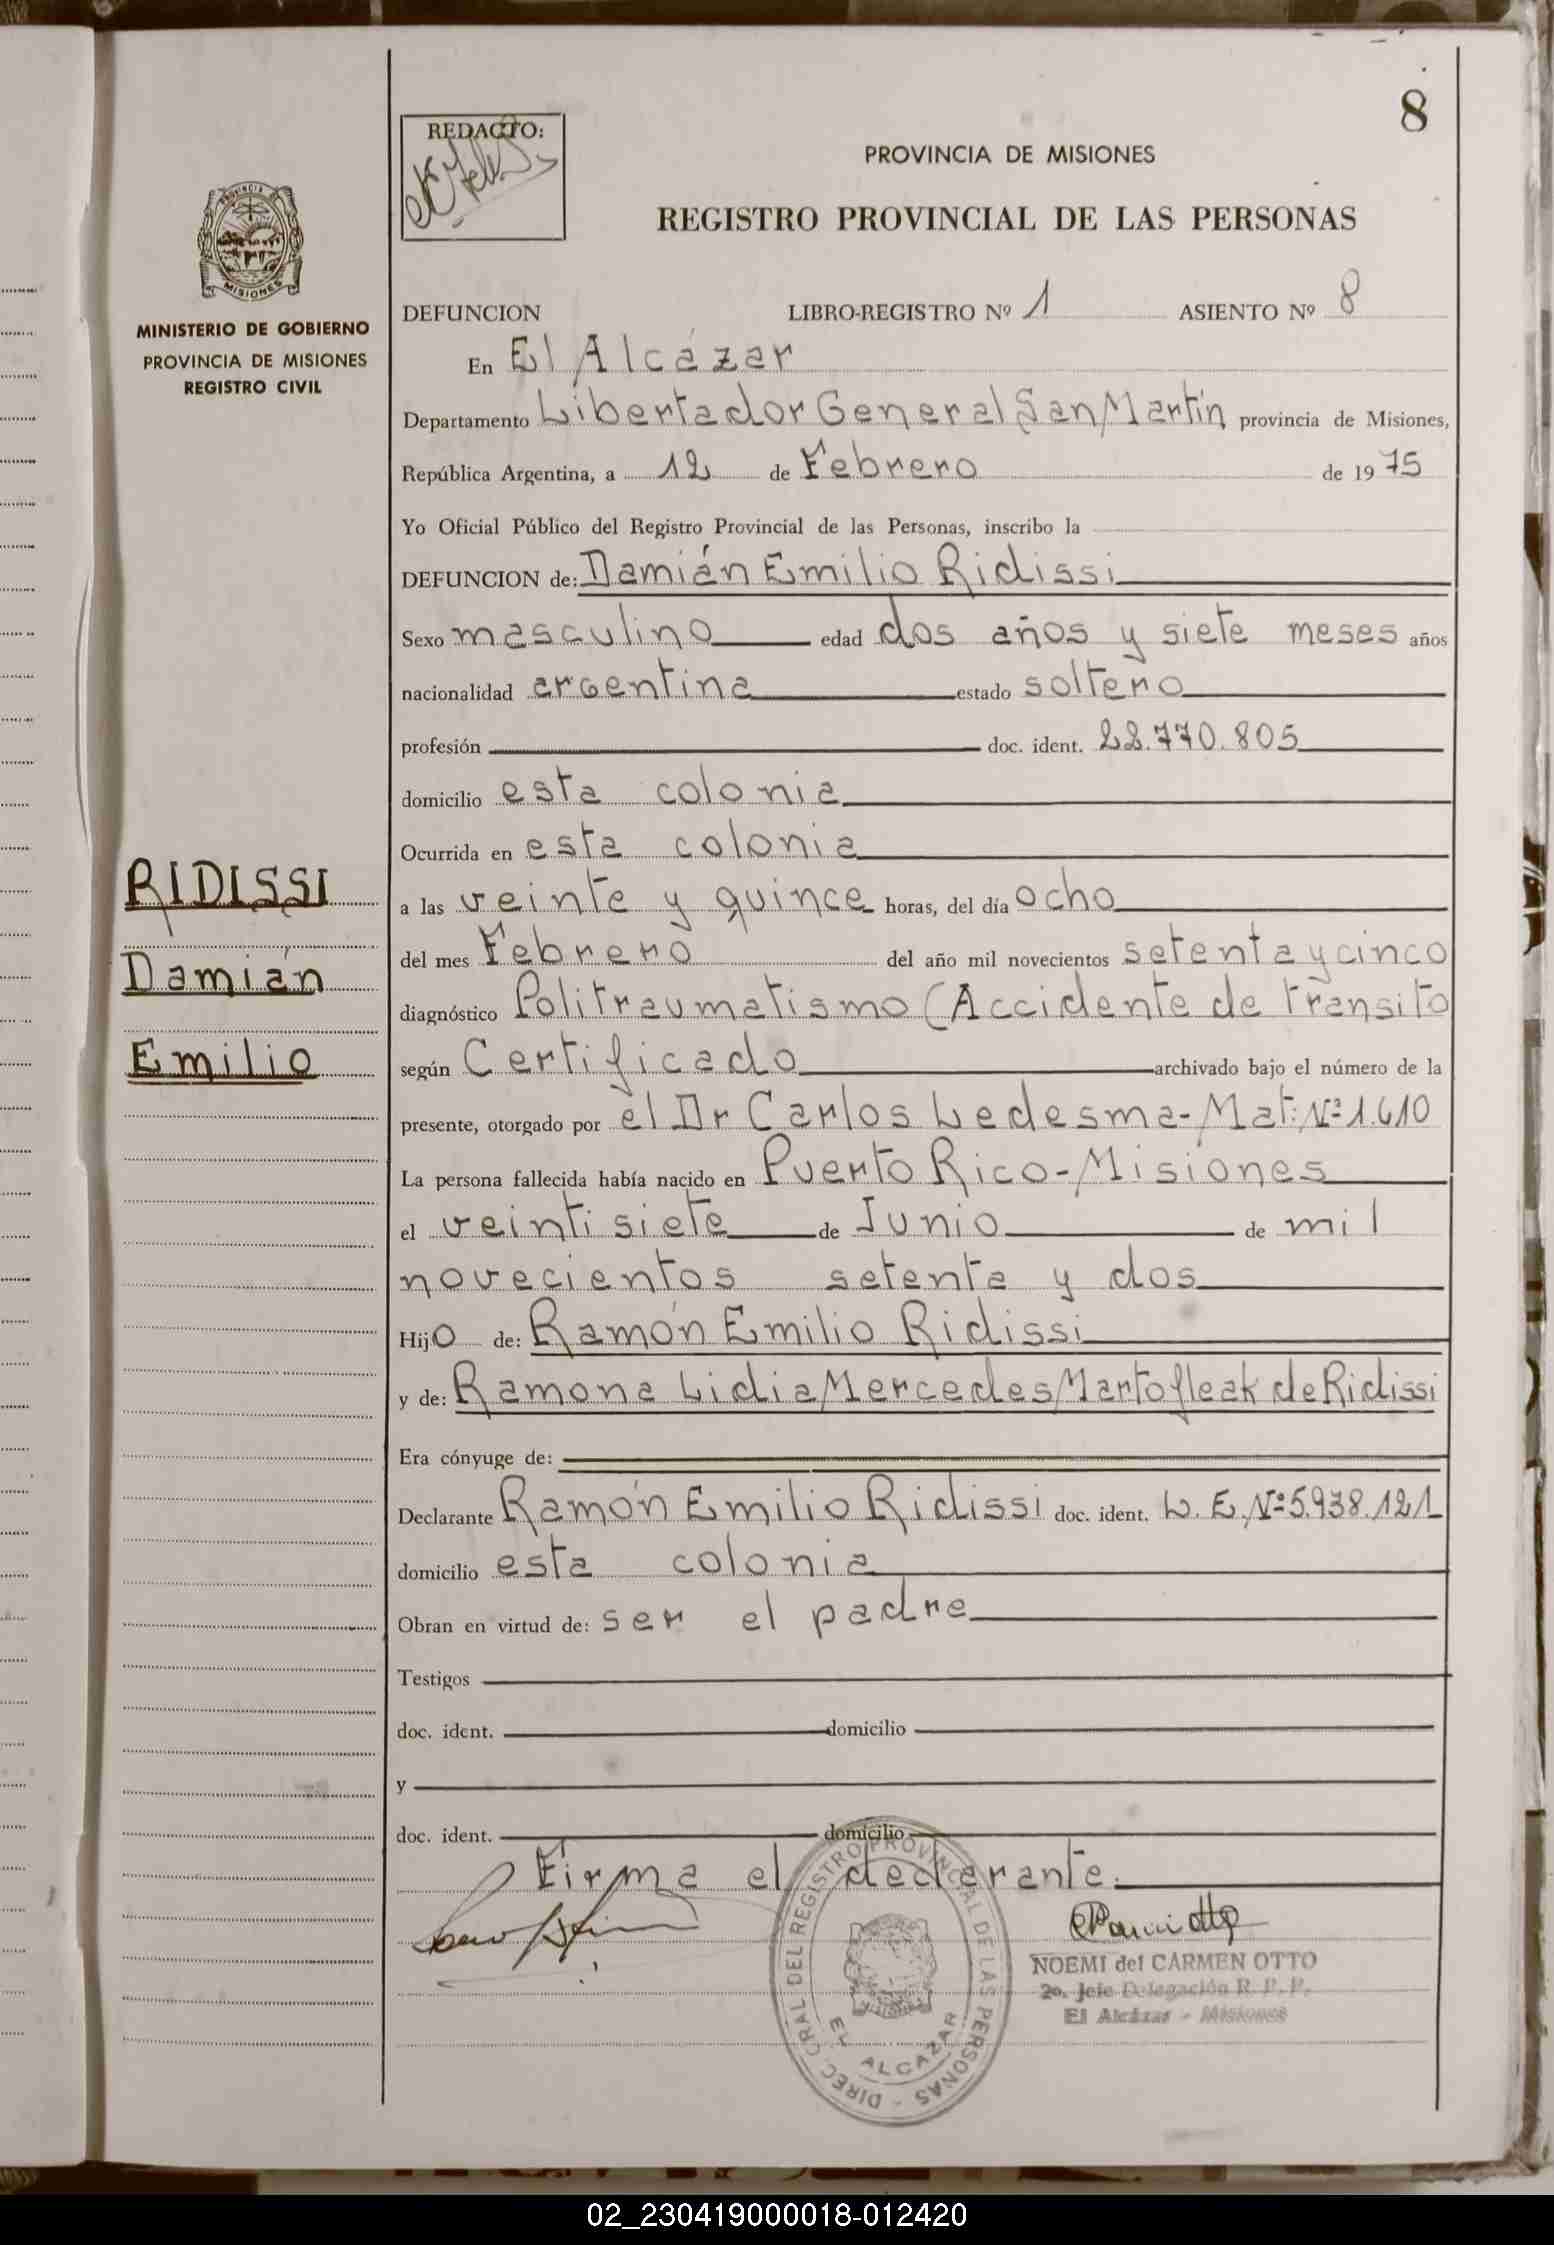 8
REDACTO:
PROVINCIA DE MISIONES
REGISTRO PROVINCIAL DE LAS PERSONAS
MISIONES
MINISTERIO DE GOBIERNO
PROVINCIA DE MISIONES
REGISTRO CIVIL
DEFUNCION LIBRO-REGISTRO Nº 1 ASIENTO Nº 8
En El Alcázar
Departamento Libertador General San Martín provincia de Misiones,
República Argentina, a 12 de Febrero de 1975
Yo Oficial Público del Registro Provincial de las Personas, inscribo la
DEFUNCION de: Damián Emilio Ridissi
Sexo masculino edad dos años y siete meses años
nacionalidad argentina estado soltero
profesión doc. ident. 22.770.805
domicilio esta colonia
Ocurrida en esta colonia
RIDISSI
Damián
Emilio
a las veinte y quince horas, del día ocho
del mes Febrero del año mil novecientos setenta y cinco
diagnóstico Politraumatismo (Accidente de transito
según Certificado archivado bajo el número de la
presente, otorgado por el Dr Carlos Ledesma-Mat: Nº 1.610
La persona fallecida había nacido en Puerto Rico-Misiones
el veintisiete de Junio de mil
novecientos setenta y dos
Hijo de: Ramón Emilio Ridissi
y de: Ramona Lidia Mercedes Martofleak de Ridissi
Era cónyuge de:
Declarante Ramón Emilio Ridissi doc. ident. L.E. Nº 5.938.121
domicilio esta colonia
Obran en virtud de: ser el padre
Testigos
doc. ident. domicilio
y
doc. ident. domicilio
Firma el declarante.
DIREC. GRAL DEL REGISTRO PROVINCIAL DE LAS PERSONAS -
EL ALCAZAR
NOEMI del CARMEN OTTO
2o. Jefe Delegación R. P. P.
El Alcázar - Misiones
02_230419000018-012420